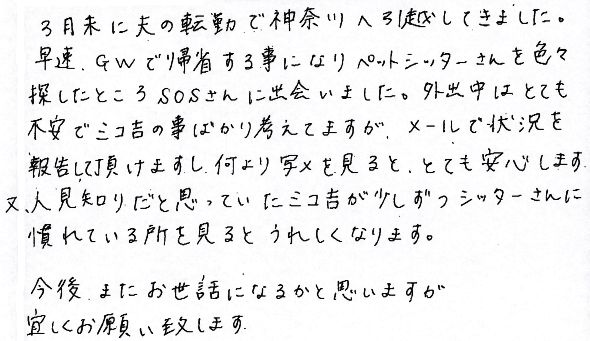 3月末に夫の転勤で神奈川へ引越してきました。
早速、GWで帰省する事になりペットシッターさんを色々
探したところSOSさんに出会いました。外出中はとても
不安でミコ吉の事ばかり考えてますが、メールで状況を
報告して頂けますし、何より写メを見ると、とても安心します。
又、人見知りだと思っていたミコ吉が少しずつシッターさんに
慣れている所を見るとうれしくなります。
今後、またお世話になるかと思いますが
宜しくお願い致します。